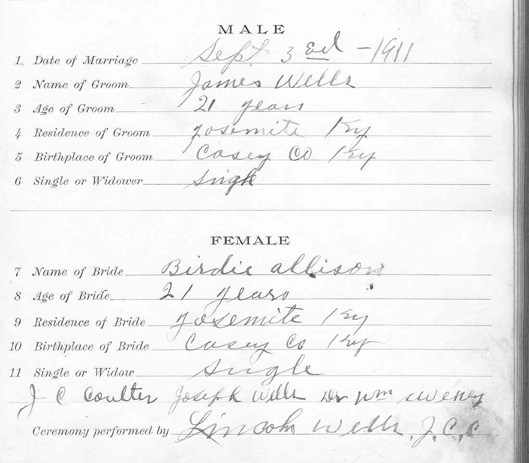 MALE
1. Date of Marriage Sept 3rd - 1911
2 Name of Groom James Wells
3 Age of Groom 21 years
4 Residence of Groom Yosemite Ky
5 Birthplace of Groom Casey Co Ky
6 Single or Widower Single
FEMALE
7 Name of Bride Birdie Allison
8 Age of Bride 21 years
9 Residence of Bride Yosemite Ky
10 Birthplace of Bride Casey Co Ky
11 Single or Widow Single
J C Coulter Joseph Wells Dr Wm Sweney
Ceremony performed by Lincoln Wells, J.C.C